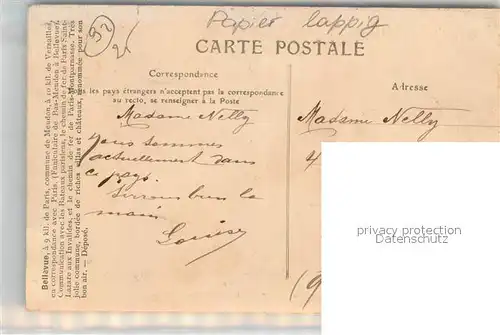 Papier lappig
92
2,
CARTE POSTALE
Correspondance
Tous les pays étrangers n'acceptent pas la correspondance
au recto, se renseigner à la Poste
Adresse
Madame Nelly
Nous sommes
actuellement dans
ce pays.
Serrons bien la
main
Louise
Madame Nelly
4
(9
privacy protection
Datenschutz
Bellevue, à 9 kil. de Paris, commune de Meudon, à 10 kil. de Versailles,
en correspondance avec Paris. (Funiculaire de Bas-Meudon à Bellevue).
Communication avec les Bateaux parisiens, le chemin de fer de Paris Saint-
Lazare aux Invalides, et le chemin de fer de Paris-Montparnasse. Très
jolie commune, bordée de riches villas et châteaux, renommée pour son
bon air. — Déposé.